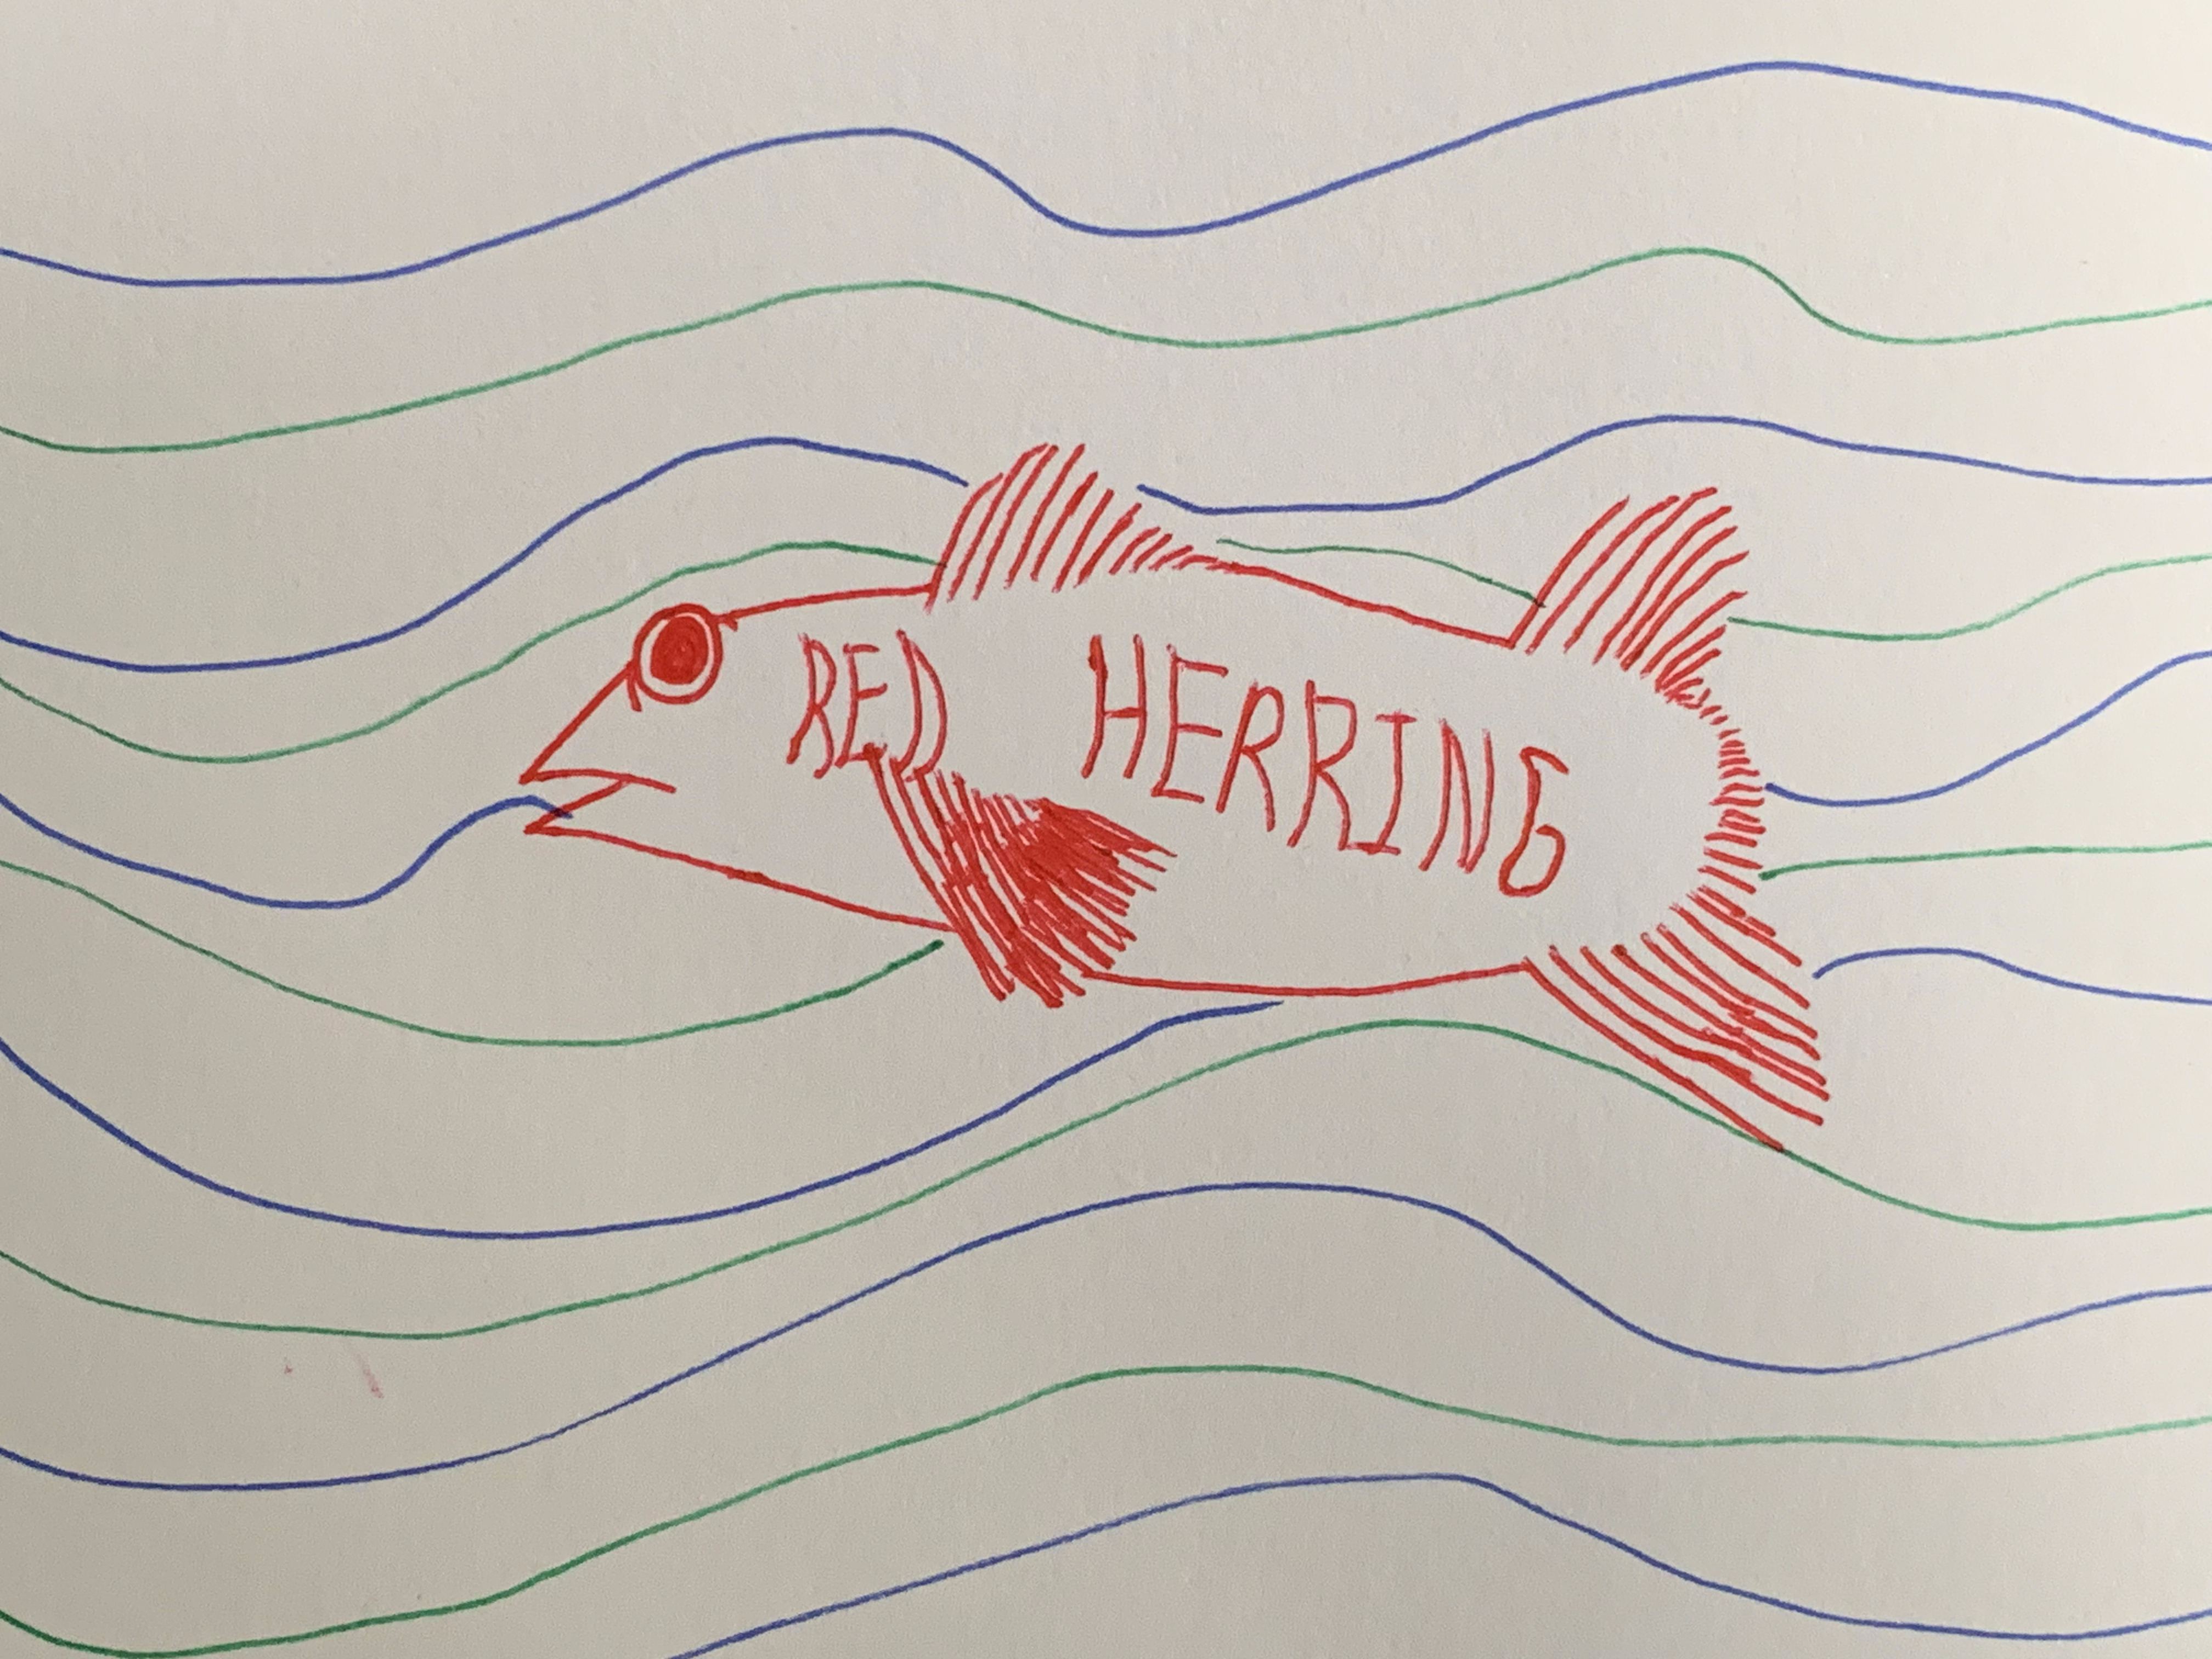 RED HERRING